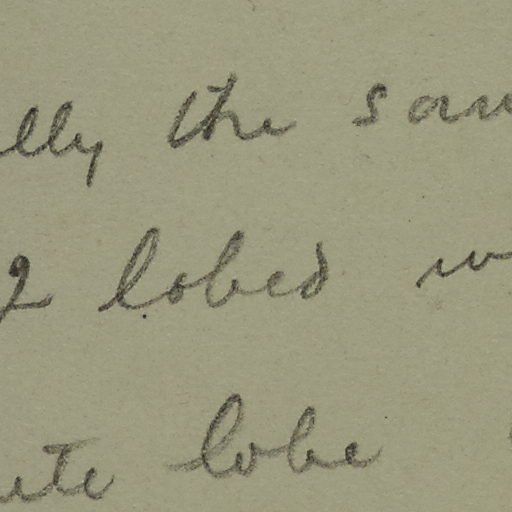 lly the sam
2 lobed w
ute lobe